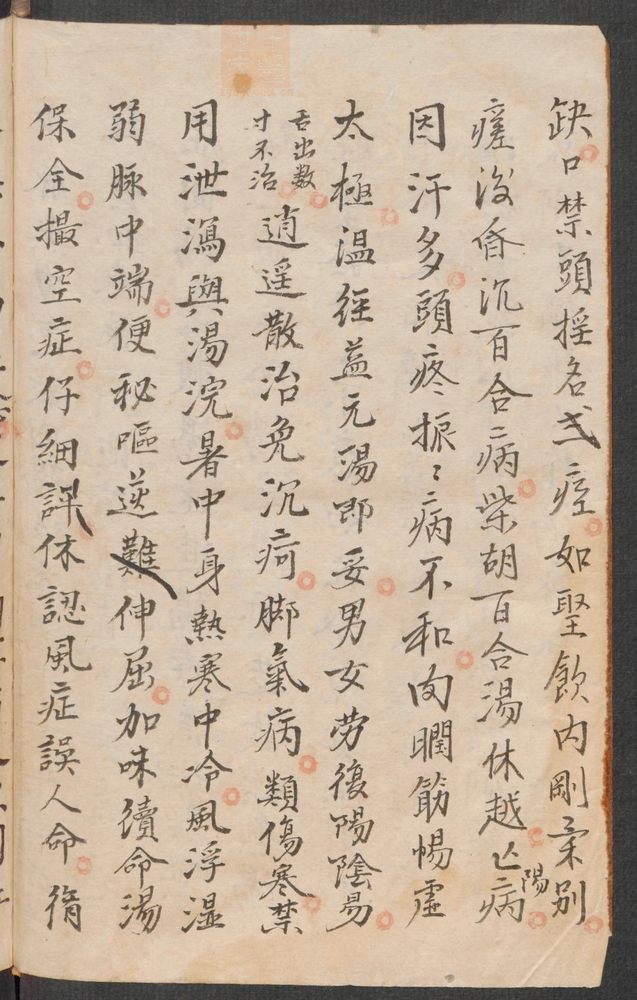 缺口禁頭搖名弍痙如聖飲内剛柔别
瘥後昏沉百合病柴胡百合湯休越亡陽病
因汗多頭疼振〻病不和肉瞤筋惕虚
太極温経益元湯即妥男女劳復陽陰易
舌出数寸不治逍遥散治免沉疴脚氣病類傷寒禁
用泄瀉與湯浣暑中身熱寒中冷風浮湿
弱脉中端便秘嘔逆難伸屈加味續命湯
保全撮空症仔細詳休認風症誤人命循